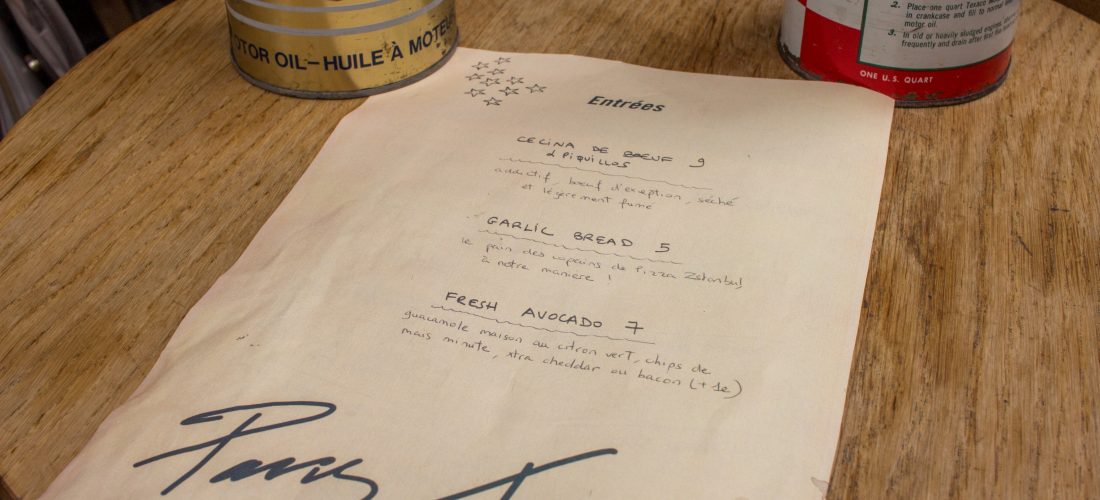 MOTOR OIL-HUILE À MOTEUR
2. Place one quart Texaco
in crankcase and fill to normal
motor oil.
3. In old or heavily sludged engines,
frequently and drain after
ONE U.S. QUART
Entrées
CECINA DE BŒUF 9
& PIQUILLOS
addictif, bœuf d'exeption, séché
et légèrement fumé
GARLIC BREAD 5
le pain des copains de Pizza Zstanbul,
à notre maniere !
FRESH AVOCADO 7
guacamole maison au citron vert, chips de
maïs minute, xtra cheddar ou bacon (+1e)